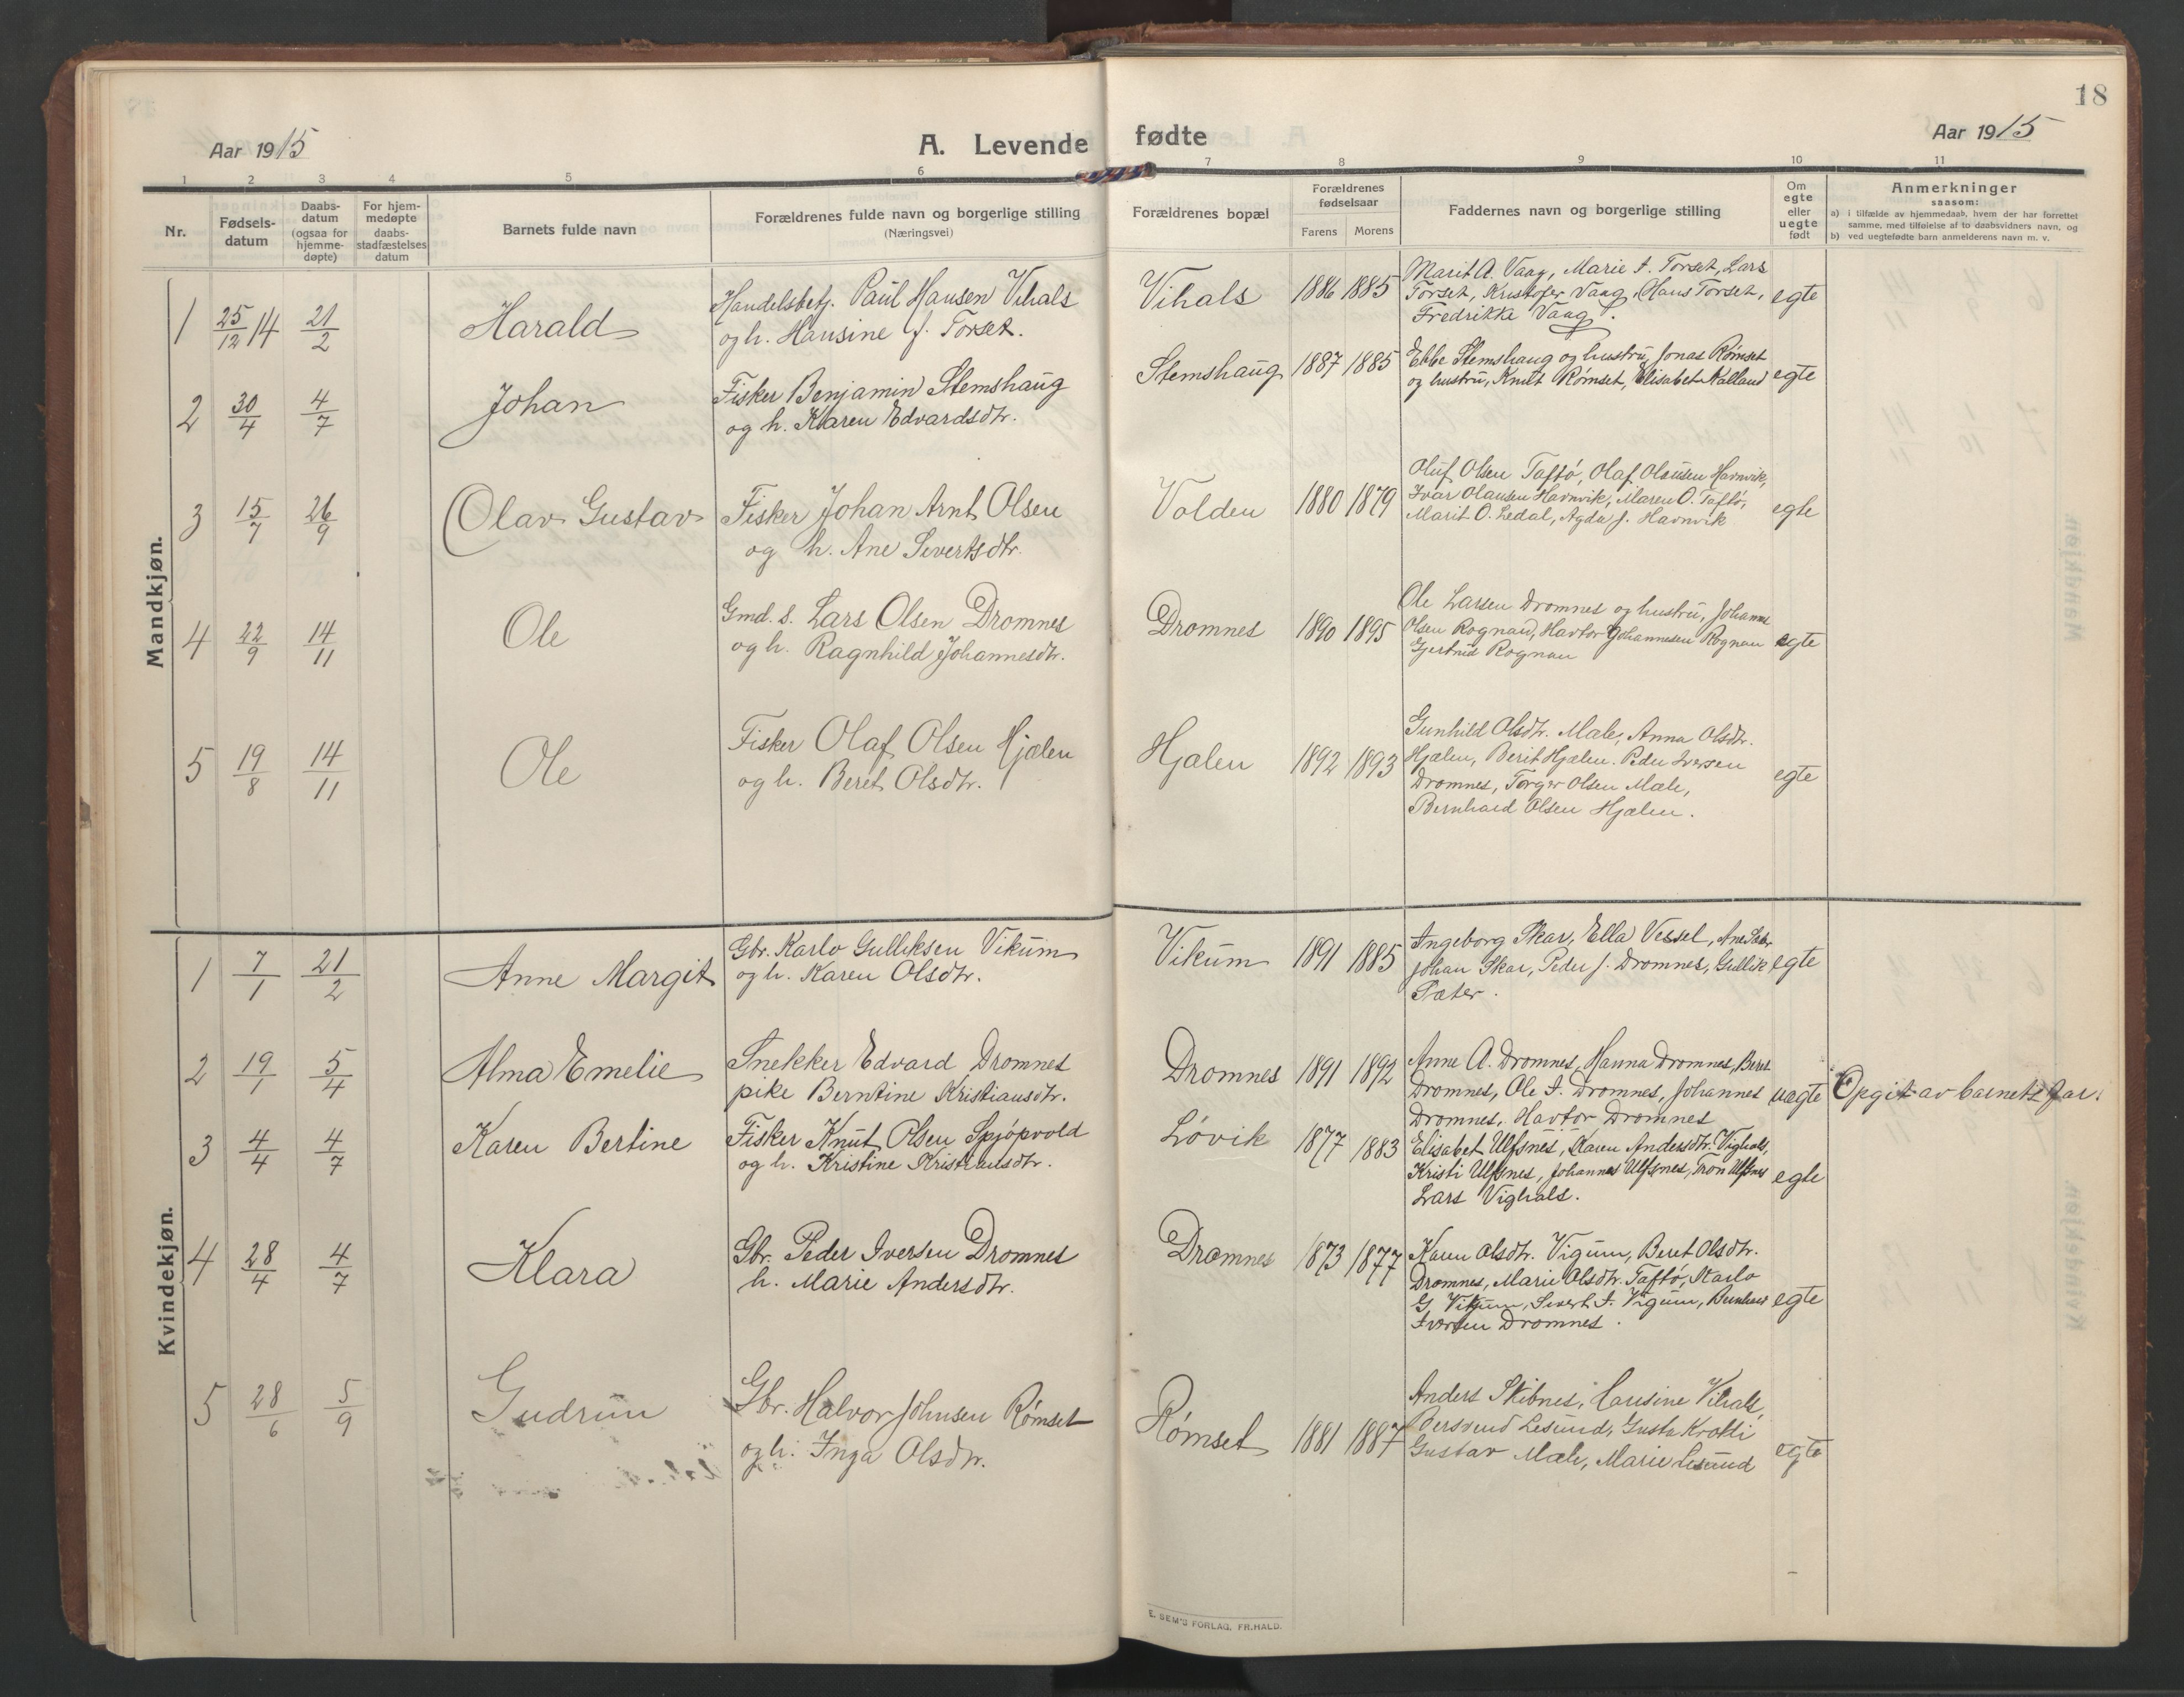 18
Aar 1915
A. Levende fødte
Aar 1915
1 2 3 4 5 6 7 8 9 10 11
Nr.
Fødsels-
datum
Daabs-
datum
(ogsaa for
hjemme-
døpte)
For hjem-
medøpte
daabs-
stadfæstelses
datum
Barnets fulde navn
Forældrenes fulde navn og borgerlige stilling
(Næringsvei)
Forældrenes bopæl
Forældrenes
fødselsaar
Farens Morens
Faddernes navn og borgerlige stilling
Om
egte
eller
uegte
født
Anmerkninger
saasom:
a) i tilfælde av hjemmedaab, hvem der har forrettet
samme, med tilføielse af to daabsvidners navn, og
b) ved uegtefødte barn anmelderens navn m. v.
Mandkjøn.
1 25/12 14 21/2 Harald
Handelsbetj. Paul Hansen Vihals
og h. Hansine J. Torset.
Vihals 1886 1885
Marit A. Vaag, Marie I. Torset, Lars
Torset, Kristofer Vaag, Hans Torset,
Fredrikke Vaag.
egte
2 30/4 4/7 Johan
Fisker Benjamin Stemshaug
og h. Karen Edvardsdtr.
Stemshaug 1887 1885
Ebbe Stemshaug og hustru, Jonas Rømset
og hustru, Knut Rømset, Elisabet Kalland
egte
3 15/7 26/9 Olav Gustav
Fisker Johan Arnt Olsen
og h. Ane Sivertsdtr.
Volden 1880 1879
Oluf Olsen Taftø, Olaf Olausen Havnvik,
Ivar Olausen Havnvik, Maren O. Taftø,
Marit O. Ledal, Agda J. Havnvik
egte
4 22/9 14/11 Ole
Gmd. s. Lars Olsen Dromnes
og h. Ragnhild Johannesdtr.
Dromnes 1890 1895
Ole Larsen Dromnes og hustru, Johannes
Olsen Rognan, Havtor Johannesen Rognan
Gjertrud Rognan
egte
5 19/8 14/11 Ole
Fisker Olaf Olsen Hjælen
og h. Beret Olsdtr.
Hjælen 1892 1893
Gunhild Olsdtr. Mæle, Anna Olsdtr.
Hjælen, Berit Hjælen. Peder Iversen
Dromnes, Torger Olsen Mæle,
Bernhard Olsen Hjælen.
egte
Kvindekjøn.
1 7/1 21/2 Anne Margit
Gbr. Karlo Gulliksen Vikum
og h. Karen Olsdtr.
Vikum 1891 1885
Ingeborg Skar, Ella Vessel, Ane
Johan Skar, Peder J. Dromnes, Gullik
Sæter.
egte
2 19/1 5/4 Alma Emelie
Snekker Edvard Dromnes
pike Berntine Kristiansdtr.
Dromnes 1891 1892
Anne A. Dromnes, Hanna Dromnes, Beret
Dromnes, Ole I. Dromnes, Johannes
Dromnes, Havtor Dromnes
uegte
Opgit av barnets far.
3 4/4 4/7 Karen Bertine
Fisker Knut Olsen Spjøpvold
og h. Kristine Kristiansdtr.
Løvik 1877 1883
Elisabet Ulfsnes, Karen Andersdtr. Vighals,
Kristi Ulfsnes, Johannes Ulfsnes, Tron Ulfsnes
Lars Vighals.
egte
4 28/4 4/7 Klara
Gbr. Peder Iversen Dromnes
h. Marie Andersdtr.
Dromnes 1873 1877
Karen Olsdtr. Vigum, Beret Olsdtr.
Dromnes, Marie Olsdtr. Taftø, Karlo
G. Vikum, Sivert I. Vigum, Bernhard
Iversen Dromnes.
egte
5 28/6 5/9 Gudrun
Gbr. Halvor Johnsen Rømset
og h. Inga Olsdtr.
Rømset 1881 1887
Anders Skibnes, Hansine Vihals,
Lesund, Gusta
Gustav Mæle, Marie Lesund
egte
E. SEM'S FORLAG, FR.HALD.